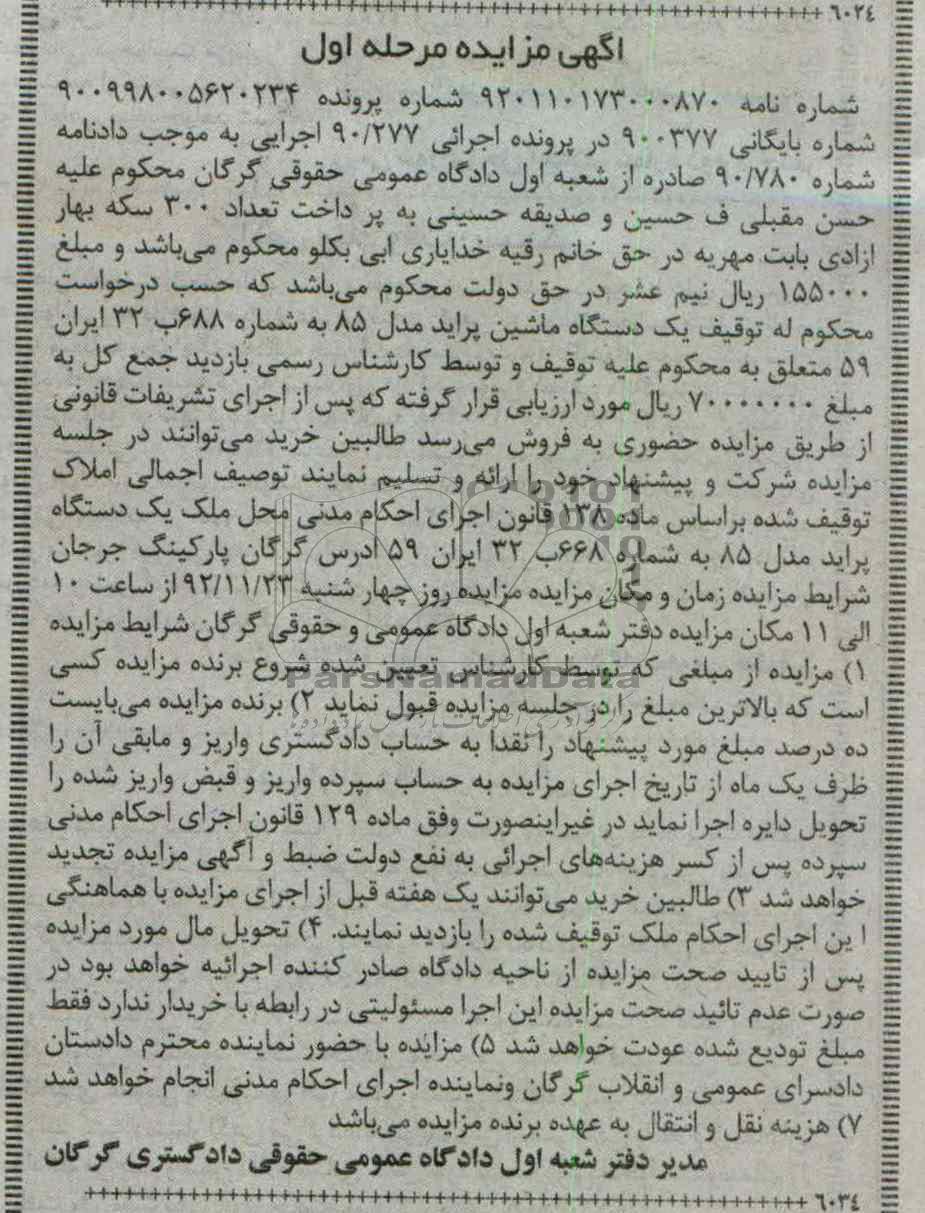 ۶۰۲۴
اگهی مزایده مرحله اول
شماره نامه ۹۲۰۱۱۰۱۷۳۰۰۰۸۷۰ شماره پرونده ۹۰۰۹۹۸۰۰۵۶۲۰۲۳۴
شماره بایگانی ۹۰۰۳۷۷ در پرونده اجرائی ۹۰/۲۷۷ اجرایی به موجب دادنامه
شماره ۹۰/۷۸۰ صادره از شعبه اول دادگاه عمومی حقوقی گرگان محکوم علیه
حسن مقبلی ف حسین و صدیقه حسینی به پر داخت تعداد ۳۰۰ سکه بهار
ازادی بابت مهریه در حق خانم رقیه خدایاری ابی بکلو محکوم می‌باشد و مبلغ
۱۵۵۰۰۰ ریال نیم عشر در حق دولت محکوم می‌باشد که حسب درخواست
محکوم له توقیف یک دستگاه ماشین پراید مدل ۸۵ به شماره ۶۸۸ب ۳۲ ایران
۵۹ متعلق به محکوم علیه توقیف و توسط کارشناس رسمی بازدید جمع کل به
مبلغ ۷۰۰۰۰۰۰۰ ریال مورد ارزیابی قرار گرفته که پس از اجرای تشریفات قانونی
از طریق مزایده حضوری به فروش می‌رسد طالبین خرید می‌توانند در جلسه
مزایده شرکت و پیشنهاد خود را ارائه و تسلیم نمایند توصیف اجمالی املاک
توقیف شده براساس ماده ۱۳۸ قانون اجرای احکام مدنی محل ملک یک دستگاه
پراید مدل ۸۵ به شماره ۶۶۸ب ۳۲ ایران ۵۹ ادرس گرگان پارکینگ جرجان
شرایط مزایده زمان و مکان مزایده مزایده روز چهار شنبه ۹۲/۱۱/۲۳ از ساعت ۱۰
الی ۱۱ مکان مزایده دفتر شعبه اول دادگاه عمومی و حقوقی گرگان شرایط مزایده
۱) مزایده از مبلغی که توسط کارشناس تعیین شده شروع برنده مزایده کسی
ParsNamadData
است که بالاترین مبلغ را در جلسه مزایده قبول نماید ۲) برنده مزایده می‌بایست
ده درصد مبلغ مورد پیشنهاد را نقدا به حساب دادگستری واریز و مابقی آن را
ظرف یک ماه از تاریخ اجرای مزایده به حساب سپرده واریز و قبض واریز شده را
تحویل دایره اجرا نماید در غیراینصورت وفق ماده ۱۲۹ قانون اجرای احکام مدنی
سپرده پس از کسر هزینه‌های اجرائی به نفع دولت ضبط و آگهی مزایده تجدید
خواهد شد ۳) طالبین خرید می‌توانند یک هفته قبل از اجرای مزایده با هماهنگی
ا ین اجرای احکام ملک توقیف شده را بازدید نمایند. ۴) تحویل مال مورد مزایده
پس از تایید صحت مزایده از ناحیه دادگاه صادر کننده اجرائیه خواهد بود در
صورت عدم تائید صحت مزایده این اجرا مسئولیتی در رابطه با خریدار ندارد فقط
مبلغ تودیع شده عودت خواهد شد ۵) مزایده با حضور نماینده محترم دادستان
دادسرای عمومی و انقلاب گرگان ونماینده اجرای احکام مدنی انجام خواهد شد
۷) هزینه نقل و انتقال به عهده برنده مزایده می‌باشد
مدیر دفتر شعبه اول دادگاه عمومی حقوقی دادگستری گرگان
۶۰۳۴